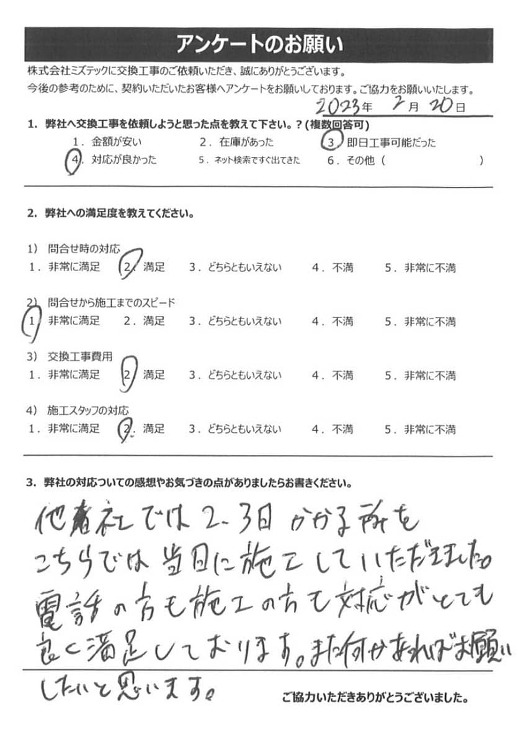 アンケートのお願い
株式会社ミズテックに交換工事のご依頼いただき、誠にありがとうございます。
今後の参考のために、契約いただいたお客様へアンケートをお願いしております。ご協力をお願いいたします。
2023年 2月 20日
1．弊社へ交換工事を依頼しようと思った点を教えて下さい。？(複数回答可)
1．金額が安い 2．在庫があった 3 即日工事可能だった
4．対応が良かった 5．ネット検索ですぐ出てきた 6．その他（ ）
2．弊社への満足度を教えてください。
1） 問合せ時の対応
1．非常に満足 2．満足 3．どちらともいえない 4．不満 5．非常に不満
2） 問合せから施工までのスピード
1 非常に満足 2．満足 3．どちらともいえない 4．不満 5．非常に不満
3） 交換工事費用
1．非常に満足 2 満足 3．どちらともいえない 4．不満 5．非常に不満
4） 施工スタッフの対応
1．非常に満足 2．満足 3．どちらともいえない 4．不満 5．非常に不満
3．弊社の対応ついての感想やお気づきの点がありましたらお書きください。
他社では2、3日かかる所を
こちらでは当日に施工していただきました。
電話の方も施工の方も対応がとても
良く満足しております。また何かあればお願い
したいと思います。
ご協力いただきありがとうございました。